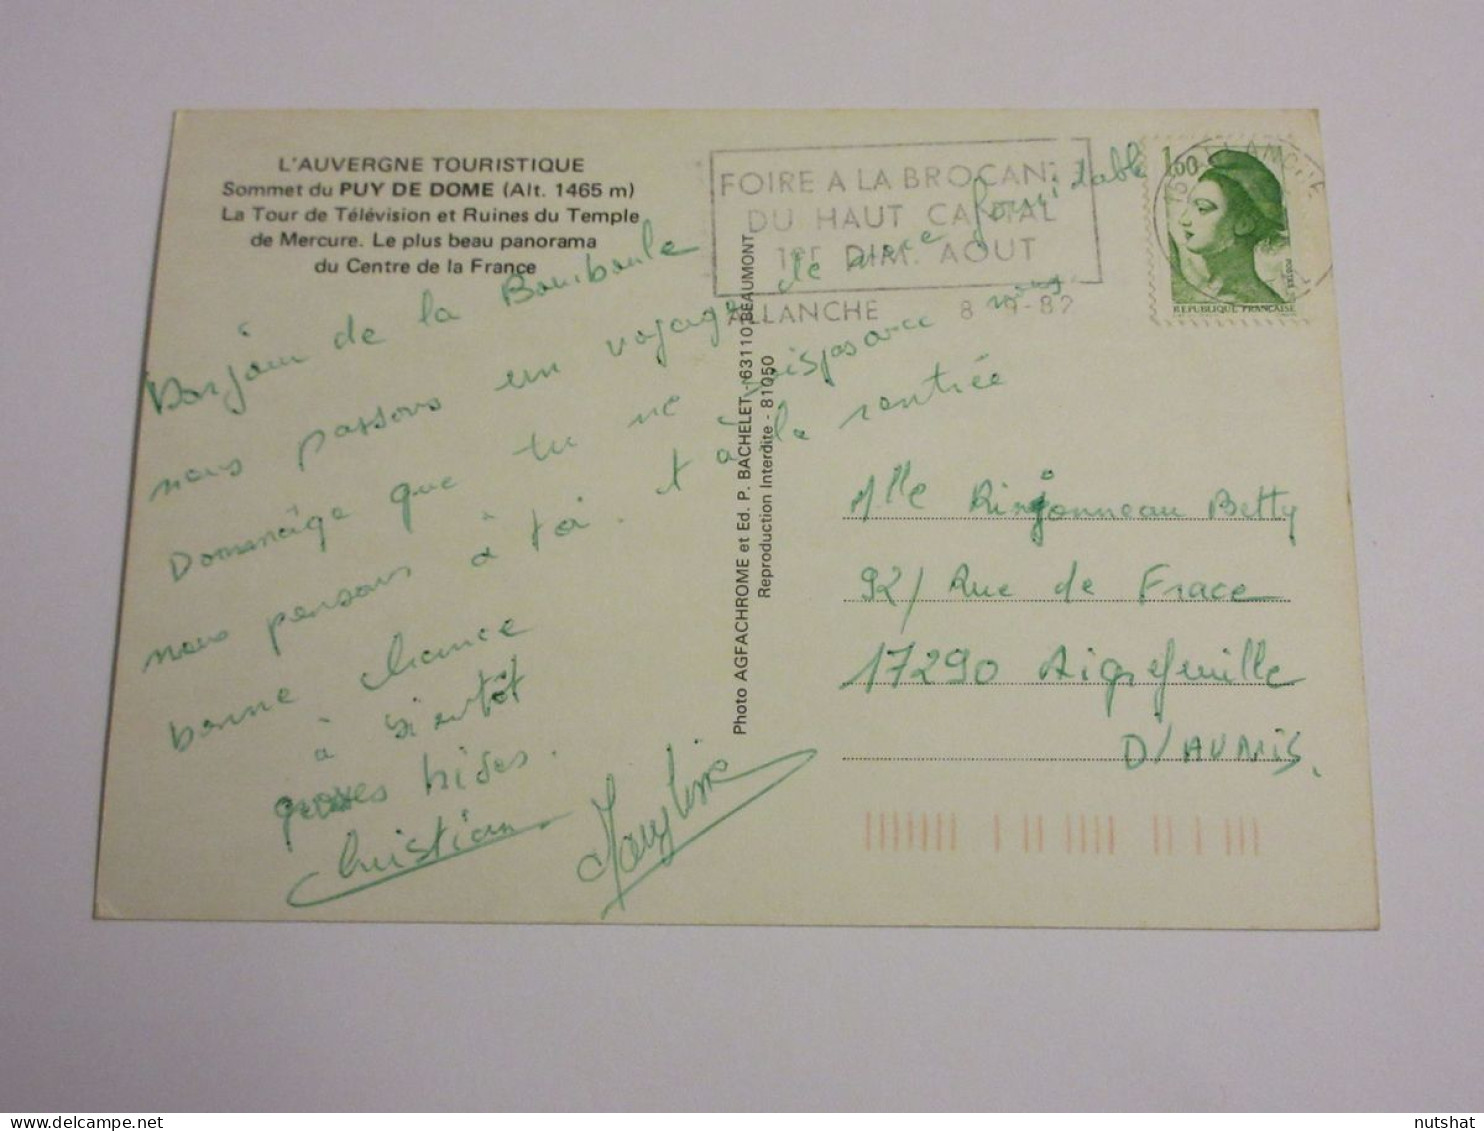 L'AUVERGNE TOURISTIQUE
Sommet du PUY DE DOME (Alt. 1465 m)
La Tour de Télévision et Ruines du Temple
de Mercure. Le plus beau panorama
du Centre de la France
FOIRE A LA BROCAN
DU HAUT CANTAL
1er DIM. AOUT
ALLANCHE 8 -9-82
ALLANCHE
1,60
POSTES
REPUBLIQUE FRANÇAISE
Bonjour de la Bourboule
nous passons un voyage de noce formidable
Dommage que tu ne sois pas avec nous.
nous pensons à toi. et à la rentrée
bonne chance
à bientôt
grosses bises.
Christian Maryline
Photo AGFACHROME et Ed. P. BACHELET - 63110 BEAUMONT
Reproduction Interdite - 81050
Mlle Rinjonneau Betty
92/ Rue de Frace
17290 Aigrefeuille
D'AUNIS.
nutshat